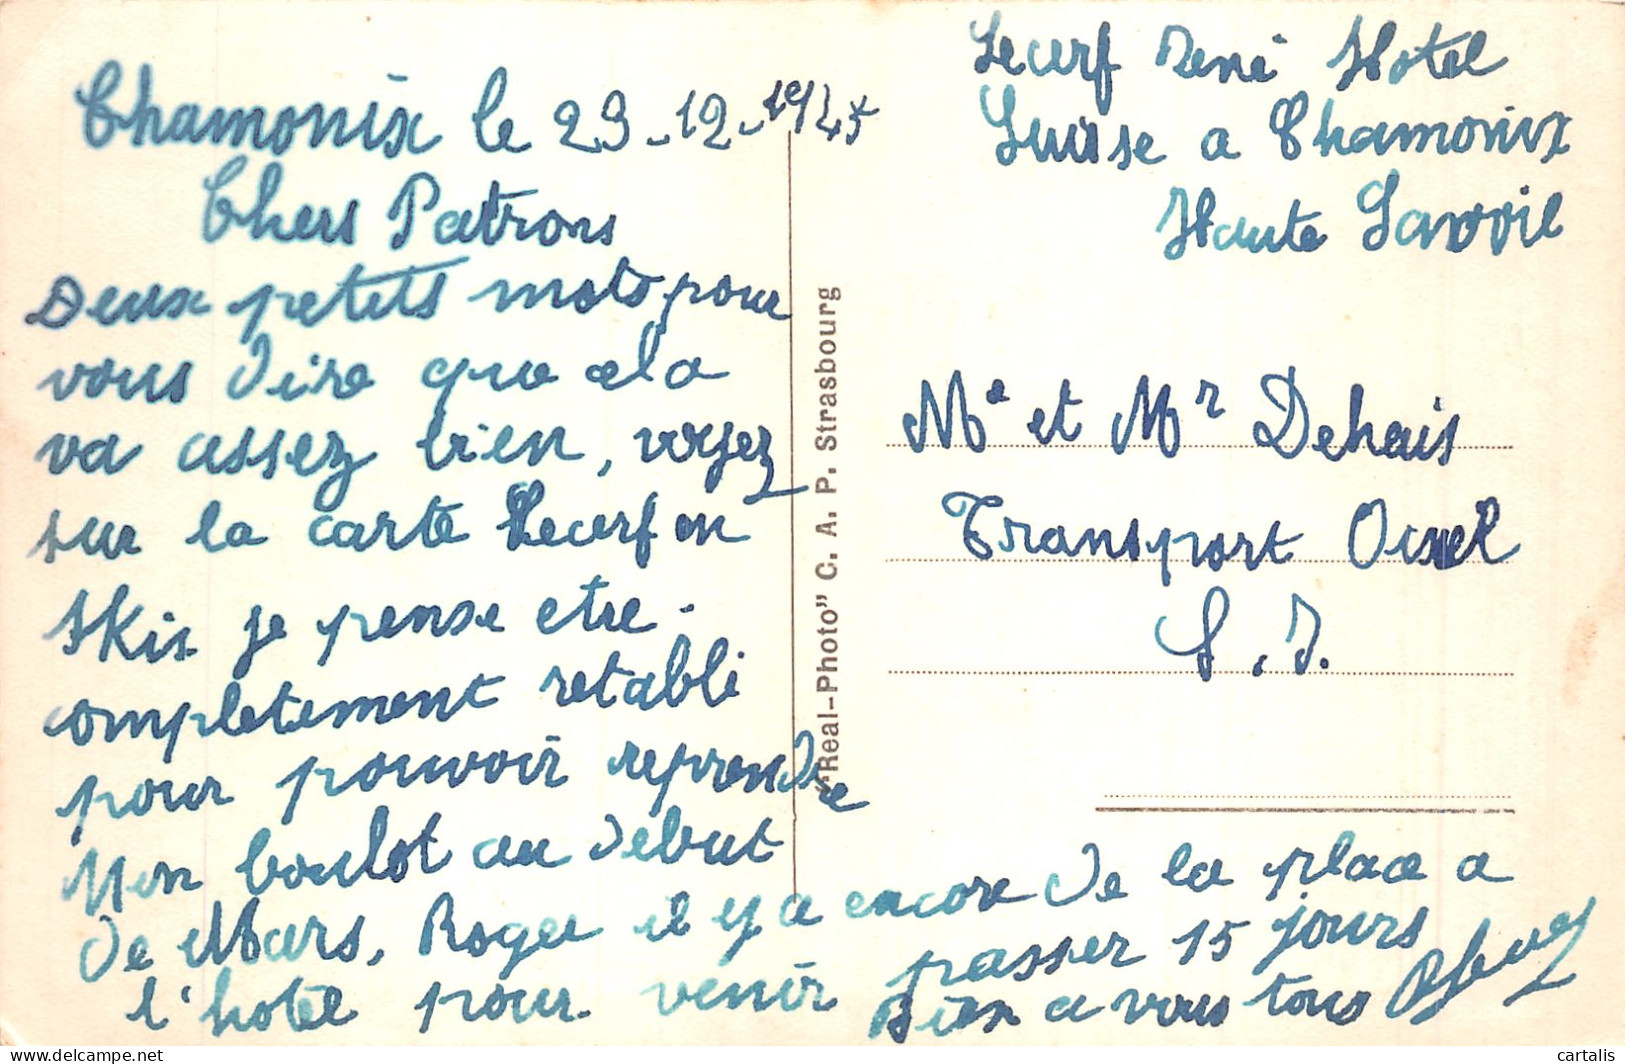 Chamonix le 29-12-1945
Chers Patrons
Deux petits mots pour
vous dire que cela
va assez bien, voyez
sur la carte Lecerf en
Skis je pense etre
completement retabli
pour pouvoir reprendre
Mon boulot au debut
de Mars, Roger il y a encore de la place a
l'hotel pour venir passer 15 jours
Bien a vous tous
Lecerf René Hotel
Suisse a Chamonix
Haute Savoie
"Real-Photo" C. A. P. Strasbourg
Me et Mr Dehais
Transport
S. I.
cartalis
delcampe.net